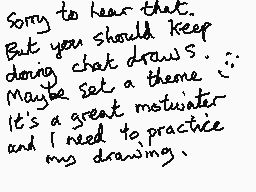 Sorry to hear that.
But you should keep
doing chat draws. :)
Maybe set a theme
it's a great motwiater
and I need to practice
my drawing.